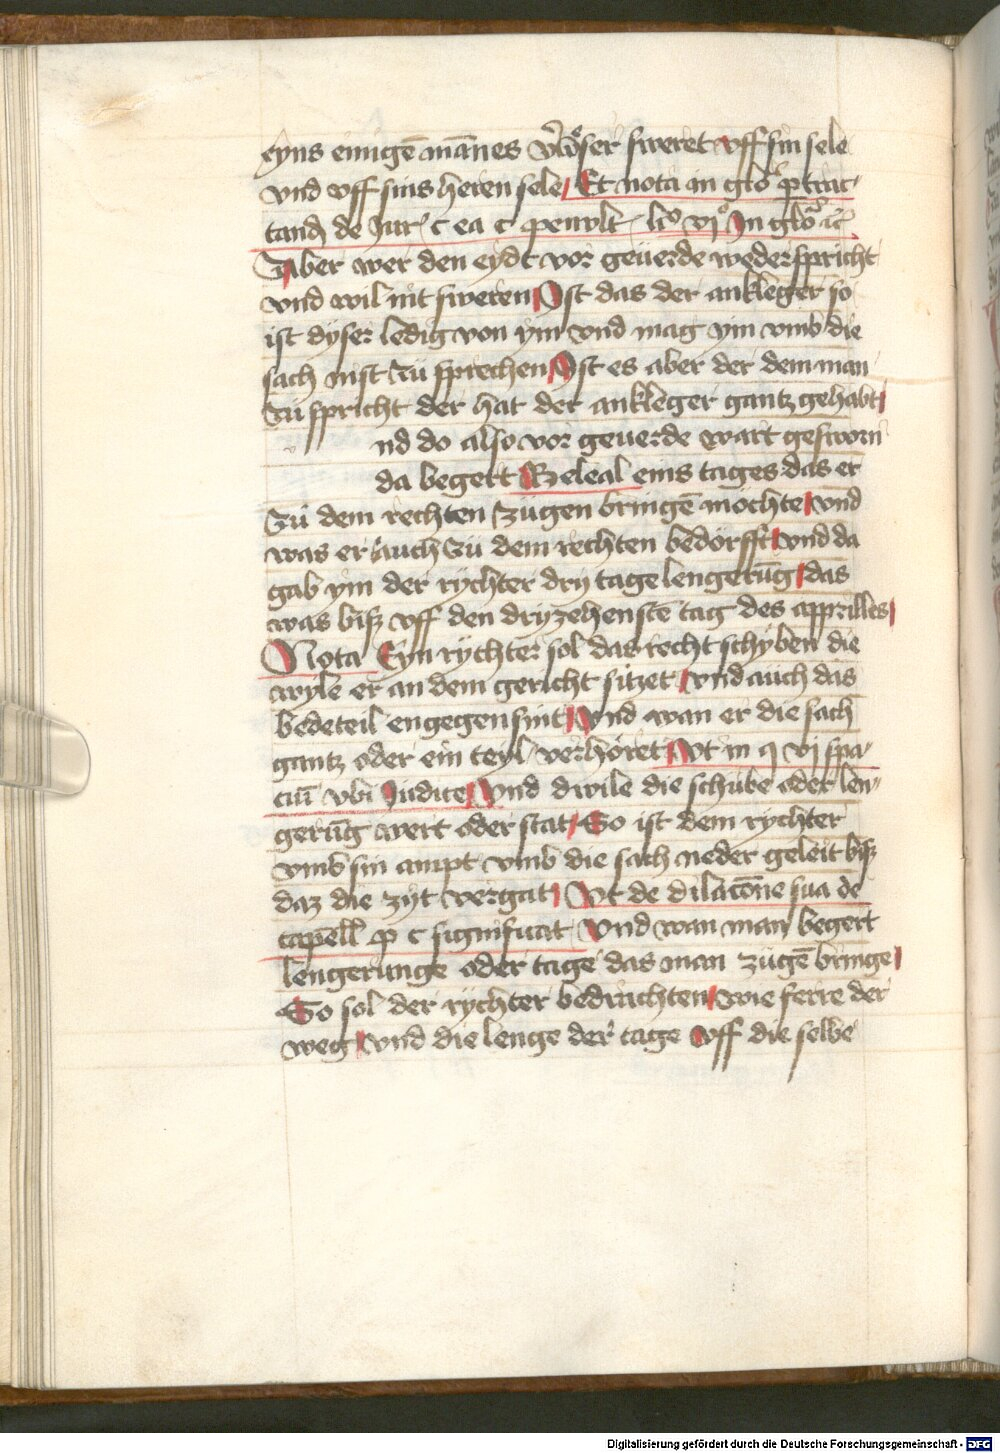 eyns einigē mānes v̾lößer sweret vff sin sele
vnd vff sins heren sele Et nota in glo p̄ trac
tand de Jur c ea c penvlt li° vj° Jn glo
Aber wer den eydt vor geuerde wederspricht
vnd wil nit sweren Jst das der ankleger so
ist dyser ledig von ym vnd mag ym vmb die
sach nist zü sprechen Jst es aber der dem man
zü spricht der hat der ankleger gantz gehabt
nd do also vor geuerde wart gesworn
da begert Beleal eins tages das er
zü dem rechten zügen bringē möchte vnd
was er auch zü dem rechten bedörfft vnd da
gab ym der rychter dry tage lengerūg das
was bisz vff den dryzehenstē tag des apprilles
Nota Eyn rychter sol das recht schyben die
wyle er an dem gericht sitzet vnd auch das
bedeteil engegen sint Vnd wan er die sach
gantz oder ein teyl verhöret Vt in q vj spa
ciū vbi Judice Vnd dwile die schübe oder len
gerūg wert oder stat So ist dem rychter
vmb sin ampt vmb die sach neder geleit bisz
daz die zyt vergat Vt de dilacōne sua de
capell p c significat Vnd wan man begert
lengerunge oder tage das man zügē bringe
So sol der rychter bedrachten wie ferre der
weg vnd die lenge der tage vff die selbe
Digitalisierung gefördert durch die Deutsche Forschungsgemeinschaft - DFG